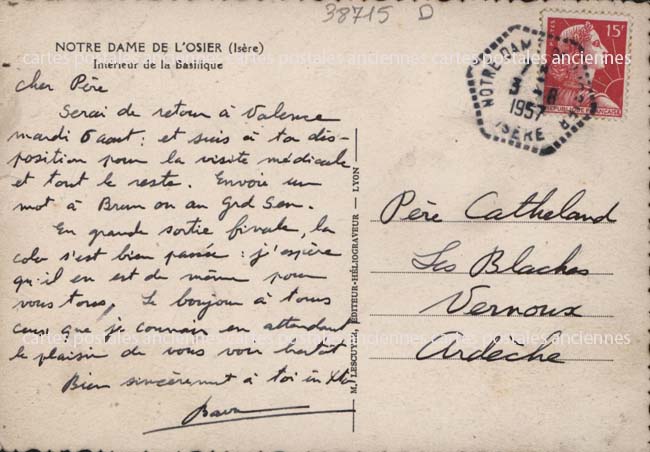 38715 D
NOTRE DAME DE L'OSIER (Isère)
Intérieur de la Basilique
cartes postales anciennes cartes postales anciennes cartes postales anciennes
cher Père
Serai de retour à Valence
mardi 6 aout : et suis à ta dis-
position pour la visite médicale
et tout le reste. Envoie un
mot à Brun ou au Grd Sem.
En grande sortie finale, la
colo s'est bien passée : j'espère
qu'il en est de même pour
vous tous. Le bonjour à tous
ceux que je connais en attendant
le plaisir de vous voir bientôt
Bien sincèrement à toi in Xto
M. LESCUYER, ÉDITEUR-HÉLIOGRAVEUR — LYON
NOTRE-DAME
3 - 8
1957
ISÈRE
15F
REPUBLIQUE FRANÇAISE
Père Catheland
Les Blaches
Vernoux
Ardèche
cartes postales anciennes cartes postales anciennes cartes postales anciennes